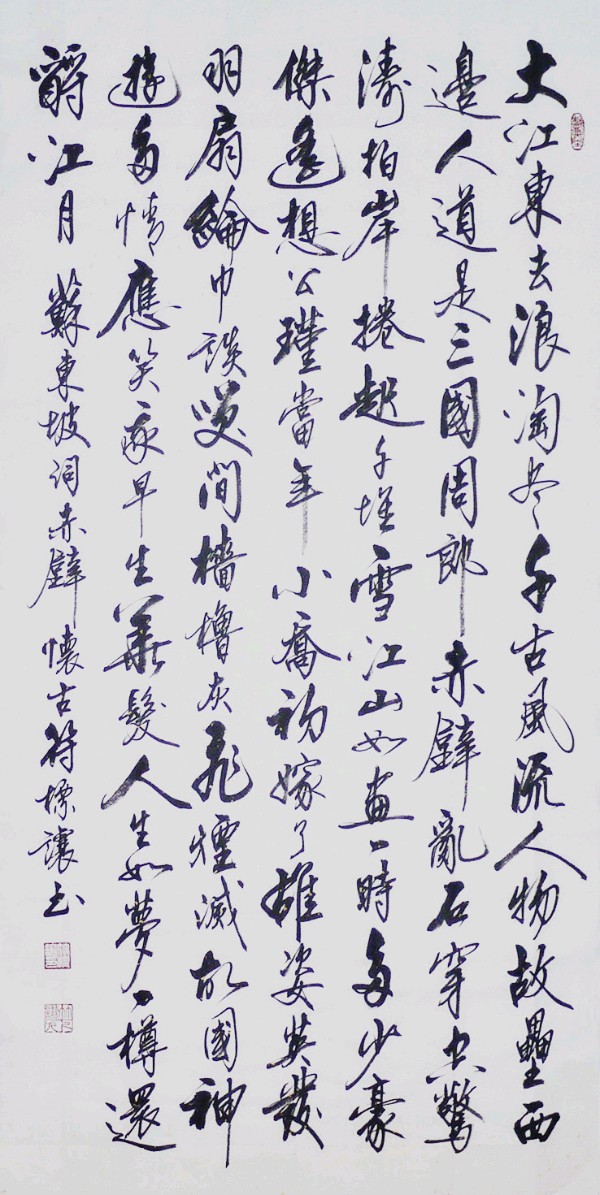 大江東去浪淘尽千古風流人物故壘西
邊人道是三國周郎赤壁亂石穿空驚
濤拍岸捲起千堆雪江山如畫一時多少豪
傑遙想公瑾當年小喬初嫁了雄姿英發
羽扇綸巾談笑間檣櫓灰飛煙滅故國神
遊多情應笑我早生華髮人生如夢一樽還
酹江月 蘇東坡詞赤壁懷古符標讓书